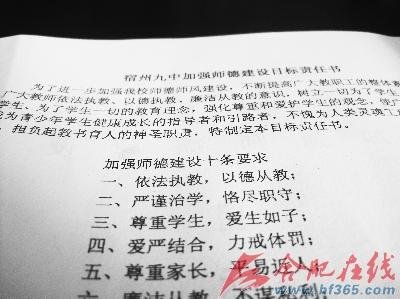 宿州九中加强师德建设目标责任书
为了进一步加强我校师德师风建设，不断提高广大教职工的整体素
广大教师依法执教、以德执教、廉洁从教的意识，树立一切为了学生
学生、为了学生一切的教育理念，强化尊重和爱护学生的观念，使广
成为青少年学生健康成长的指导者和引路者，不愧为人类灵魂工
，担负起教书育人的神圣职责，特制定本目标责任书。
加强师德建设十条要求
一、依法执教，以德从教；
二、严谨治学，恪尽职守；
三、尊重学生，爱生如子；
四、爱严结合，力戒体罚；
五、尊重家长，平易近人；
六、廉洁从教，不谋私利
合肥在线
www.hf365.com